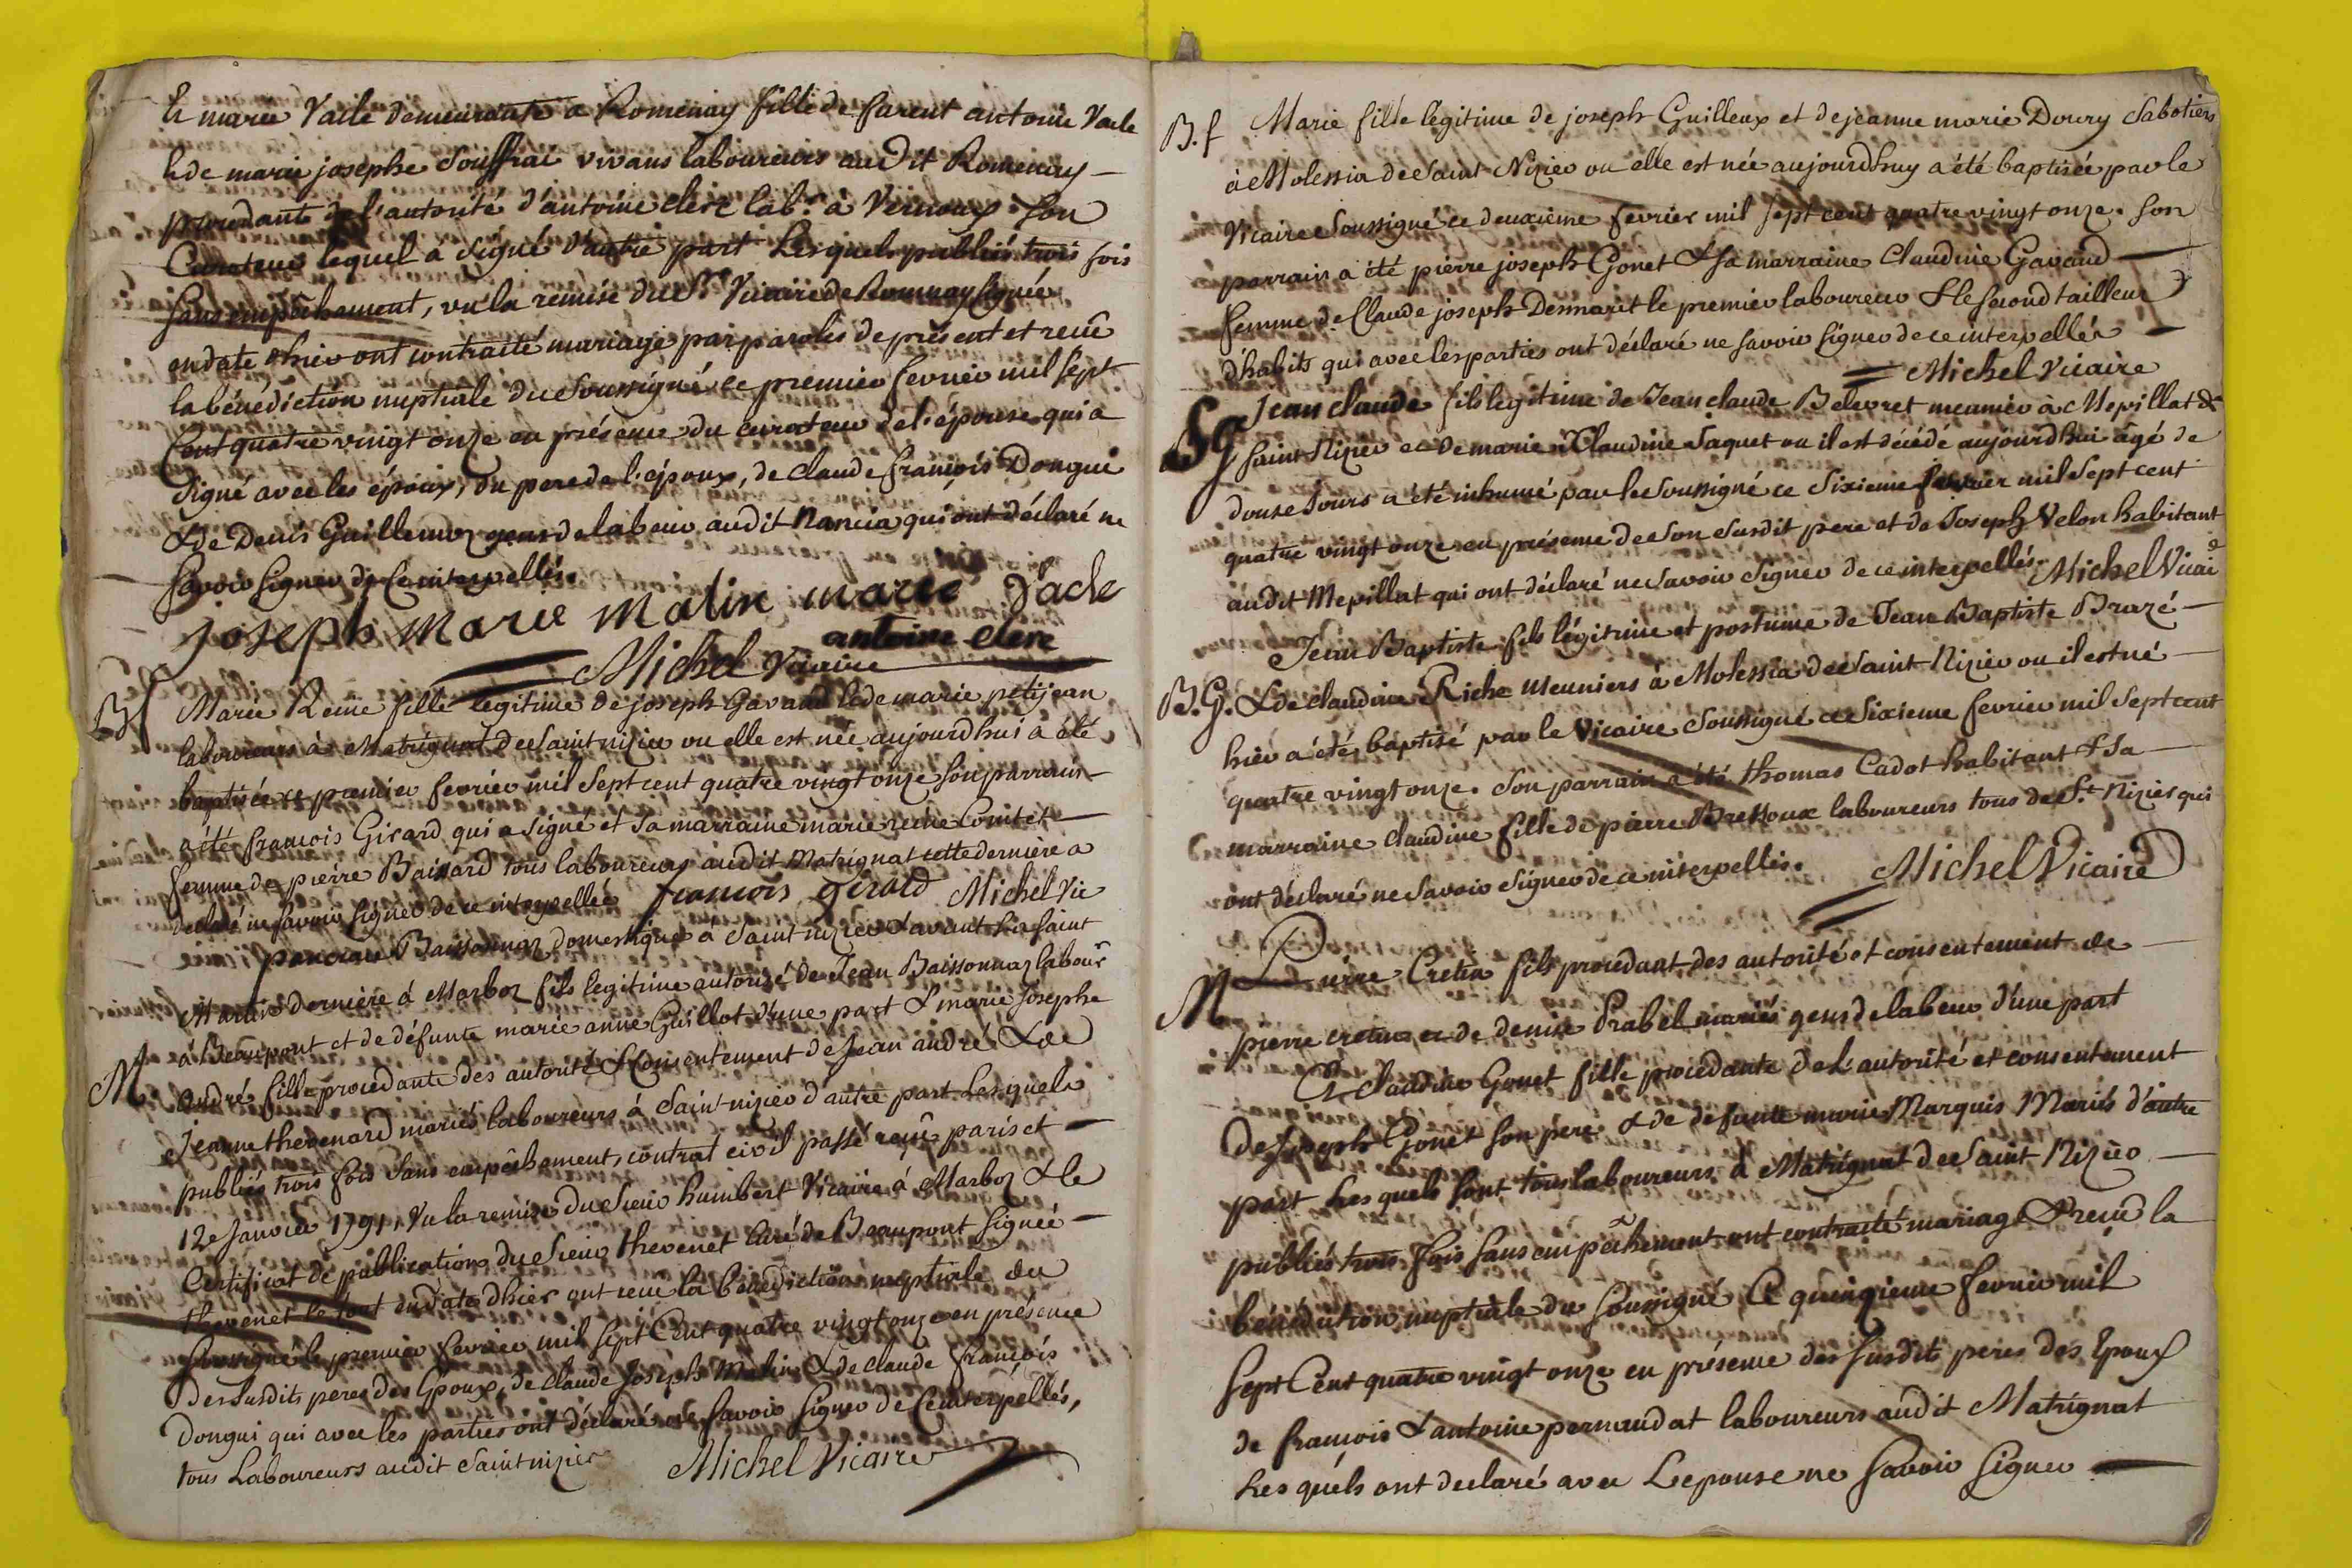 Et marie Vacle demeurante a Romenay fille de farent antoine Vacle
& de marie josephe Souffrai vivans laboureurs audit Romenay
procedante de l'autorité d'antoine clerc lab.r à Vernoux son
Curateur lequel a signé d'autre part Lesquels publiés trois fois
sans empêchement, vu la remise du Sr Vicaire de Romenay signée
en date d'hier ont contraité mariage par paroles de présent et recû
la bénédiction nuptiale du Soussigné ce premier fevrier mil sept
Cent quatre vingt onze en présence du curateur de l'épouse qui a
signé avec les époux, du pere de l'époux, de claude françois Dongui
& de Denis Guillemoz gens de labeur audit Nancia qui ont déclaré ne
savoir signer de ce interpellés.
joseph marie matin marie Vacle
antoine clerc
Michel Vicaire
Bf Marie Reine fille legitime de joseph Gavand & de marie petijean
laboureurs à Matrignat de Saint nizier ou elle est née aujourdhui a été
baptisée ce premier fevrier mil sept cent quatre vingt onze son parrain
a été françois Girard qui a signé et sa marraine marie reine Comtet
femme de pierre Baissard tous laboureurs audit Matrignat cette derniere a
declaré ne savoir signer de ce interpellée francois girard Michel Vic
Baissonnaz domestique à Saint nizier & avant la saint
Martin derniere à Marboz fils legitime autorisé de Jean Baissonnaz labour
à Beaupont et de défunte marie anne Guillot d'une part & marie Josephe
M andré fille procedante des autorité & Consentement de Jean andré & de
Jeanne thevenard mariés laboureurs à Saint nizier d'autre part Lesquels
publiés trois fois sans empêchement, contrat civil passé reçû pariset
12e Janvier 1791, Vu la remise du Sieur humbert Vicaire à Marboz & le
Certificat de publications du Sieur thevenet curé de Beaupont signée
thevenet le tout en date d'hier ont recu la bénédiction nuptiale du
soussigné le premier fevrier mil sept Cent quatre vingt onze en présence
des susdits peres des Epoux, de claude Joseph Matin & de claude françois
Dongui qui avec les parties ont déclaré ne savoir signer de ce interpellés,
tous Laboureurs audit Saint nizier Michel Vicaire
B.f Marie fille légitime de joseph Guilleux et de jeanne marie Doury Sabotiers
à Molessia de Saint Nizier ou elle est née aujourdhuy a été baptisée par le
Vicaire Soussigné ce deuxième fevrier mil sept cent quatre vingt onze. Son
parrain a été pierre joseph Gonet & sa marraine Claudine Gavand
femme de Claude joseph Desmaris le premier laboureur & le second tailleur
d'habits qui avec les parties ont déclaré ne savoir signer de ce interpellés
Michel Vicaire
Sg Jean claude fils legitime de Jean claude Belevret meunier à Mepillat de
Saint Nizier et de marie Claudine Jaquet ou il est décédé aujourdhui âgé de
douze Jours a été inhumé par le Soussigné ce Sixieme fevrier mil Sept cent
quatre vingt onze en présence de Son Susdit pere et de Joseph Velon habitant
audit Mepillat qui ont déclaré ne Savoir Signer de ce interpellés. Michel Vicaire
Jean Baptiste fils légitime et postume de Jean Baptiste Brazé
B.G. & de claudine Riche Meuniers à Molessia de Saint Nizier ou il est né
hier a été baptisé par le Vicaire Soussigné ce Sixieme fevrier mil Sept cent
quatre vingt onze. Son parrain a été thomas Cadot habitant & sa
marraine claudine fille de pierre Brethoux laboureurs tous de St. Nizier qui
ont déclaré ne Savoir Signer de ce interpellés. Michel Vicaire
Pierre Cretin fils procedant des autorité et consentement de
M pierre cretin et de denise Prabel mariés gens de labeur d'une part
Et Claudine Gonet fille procedante de l'autorité et consentement
de Joseph Gonet son père & de defunte marie Marquis Mariés d'autre
part Les quels sont tous laboureurs à Matrignat de Saint Nizier
publiés trois fois sans empêchement ont contraité mariage & recû la
bénédiction nuptiale du Soussigné Ce quinzieme fevrier mil
Sept Cent quatre vingt onze en présence des susdits peres des Epoux
de francois & antoine pernaudat laboureurs audit Matrignat
Les quels ont declaré avec L'epouse ne Savoir Signer